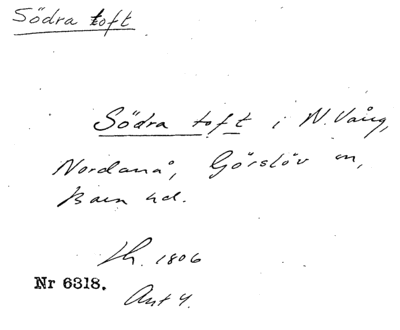 Södra toft
Södra toft i N. Vång,
Nordanå, Görslöv sn,
Bara hd.
Sk. 1806
Nr 6318.
Akt 4.